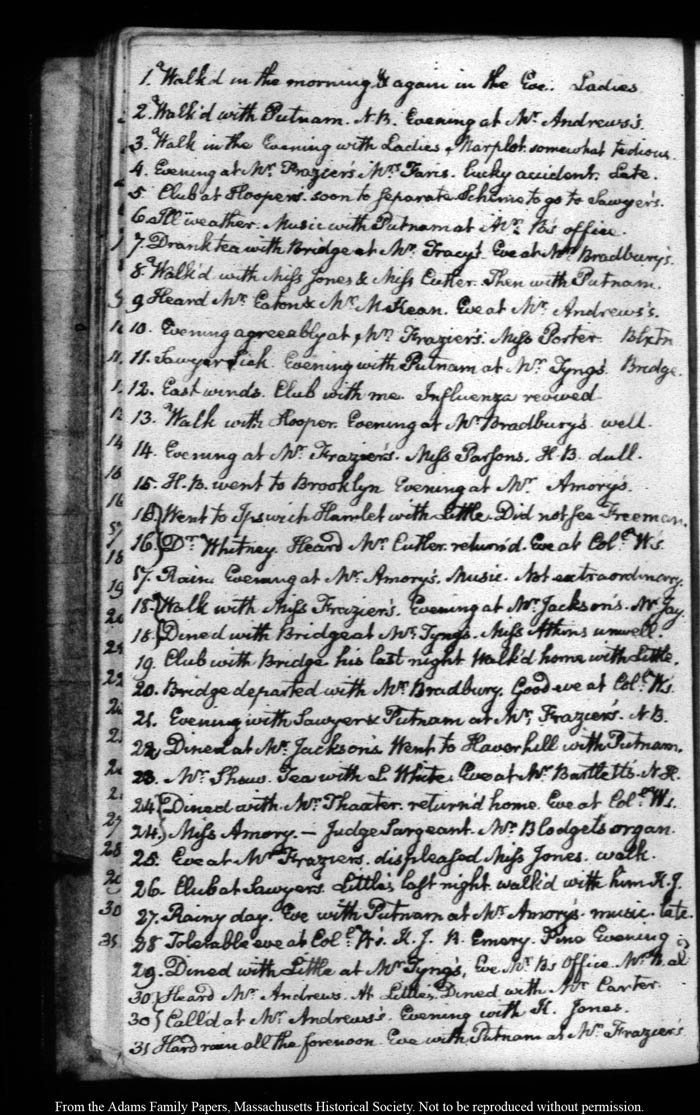 1. Walk'd in the morning, & again in the Eve. Ladies.
2. Walk'd with Putnam. N.B. Evening at Mr. Andrews's.
3. Walk in the Evening with Ladies, Marplot. somewhat tedious.
4. Evening at Mr. Frazier's. Mrs. Faris. Lucky accident. Late.
5. Club at Hooper's. soon to separate. Scheme to go to Sawyer's.
6. Ill weather. Music with Putnam at Mr. B's office.
7. Drank tea with Bridge at Mr. Tracy's. Eve at Mr. Bradbury's.
8. Walk'd with Miss Jones & Miss Cutler. Then with Putnam.
9 Heard Mr. Eaton & Mr. McKean. Eve at Mr. Andrews's.
10. Evening agreeably at Mr. Frazier's. Miss Porter Blxtn
11. Sawyer sick. Evening with Putnam at Mr. Tyng's. Bridge.
12. East winds. Club with me. Influenza revived
13. Walk with Hooper. Evening at Mr. Bradbury's. well.
14. Evening at Mr. Frazier's. Miss Parsons. H.B. dull.
15. H.B. went to Brooklyn Evening at Mr. Amory's.
16 Went to Ipswich Hamlet with Little. Did not see Freeman.
16. Dr. Whitney. Heard Mr. Cutler. return'd. Eve at Colo. W's.
17. Rain. Evening at Mr. Amory's. Music. Not extraordinary.
18. Walk with Miss Frazier's. Evening at Mr. Jackson's. Mr. Jay.
18. Dined with Bridge at Mr. Tyng's. Miss Atkins unwell.
19. Club with Bridge his last night Walk'd home with Little.
20. Bridge departed with Mr. Bradbury. Good eve at Colo. W's.
21. Evening with Sawyer & Putnam at Mr. Frazier's. N.B.
22. Dined at Mr. Jackson's. Went to Haverhill with Putnam.
23. Mr. Shaw. Tea with L. White. Eve at Mr. Bartlett's.
24. Dined with Mr. Thaxter. return'd home. Eve at Colo. W's.
24. Miss Amory. — Judge Sargeant. Mr. Blodget's organ.
25. Eve at Mr. Frazier's. displeased Miss Jones. walk.
26. Club at Sawyers. Little's last night. walk'd with him H.J.
27. Rainy day. Eve with Putnam at Mr. Amory's. music. late.
28 Tolerable eve at Colo. W's. H.J. R. Emery. Fine Evening
29. Dined with Little at Mr. Tyng's, Eve Mr. B's Office. Mr. B.
30 Heard Mr. Andrews. At Little's. Dined with Mr. Carter.
30 Call'd at Mr. Andrews's. Evening with H. Jones.
31 Hard rain all the forenoon. Eve with Putnam at Mr. Frazier's
From the Adams Family Papers, Massachusetts Historical Society. Not to be reproduced without permission.